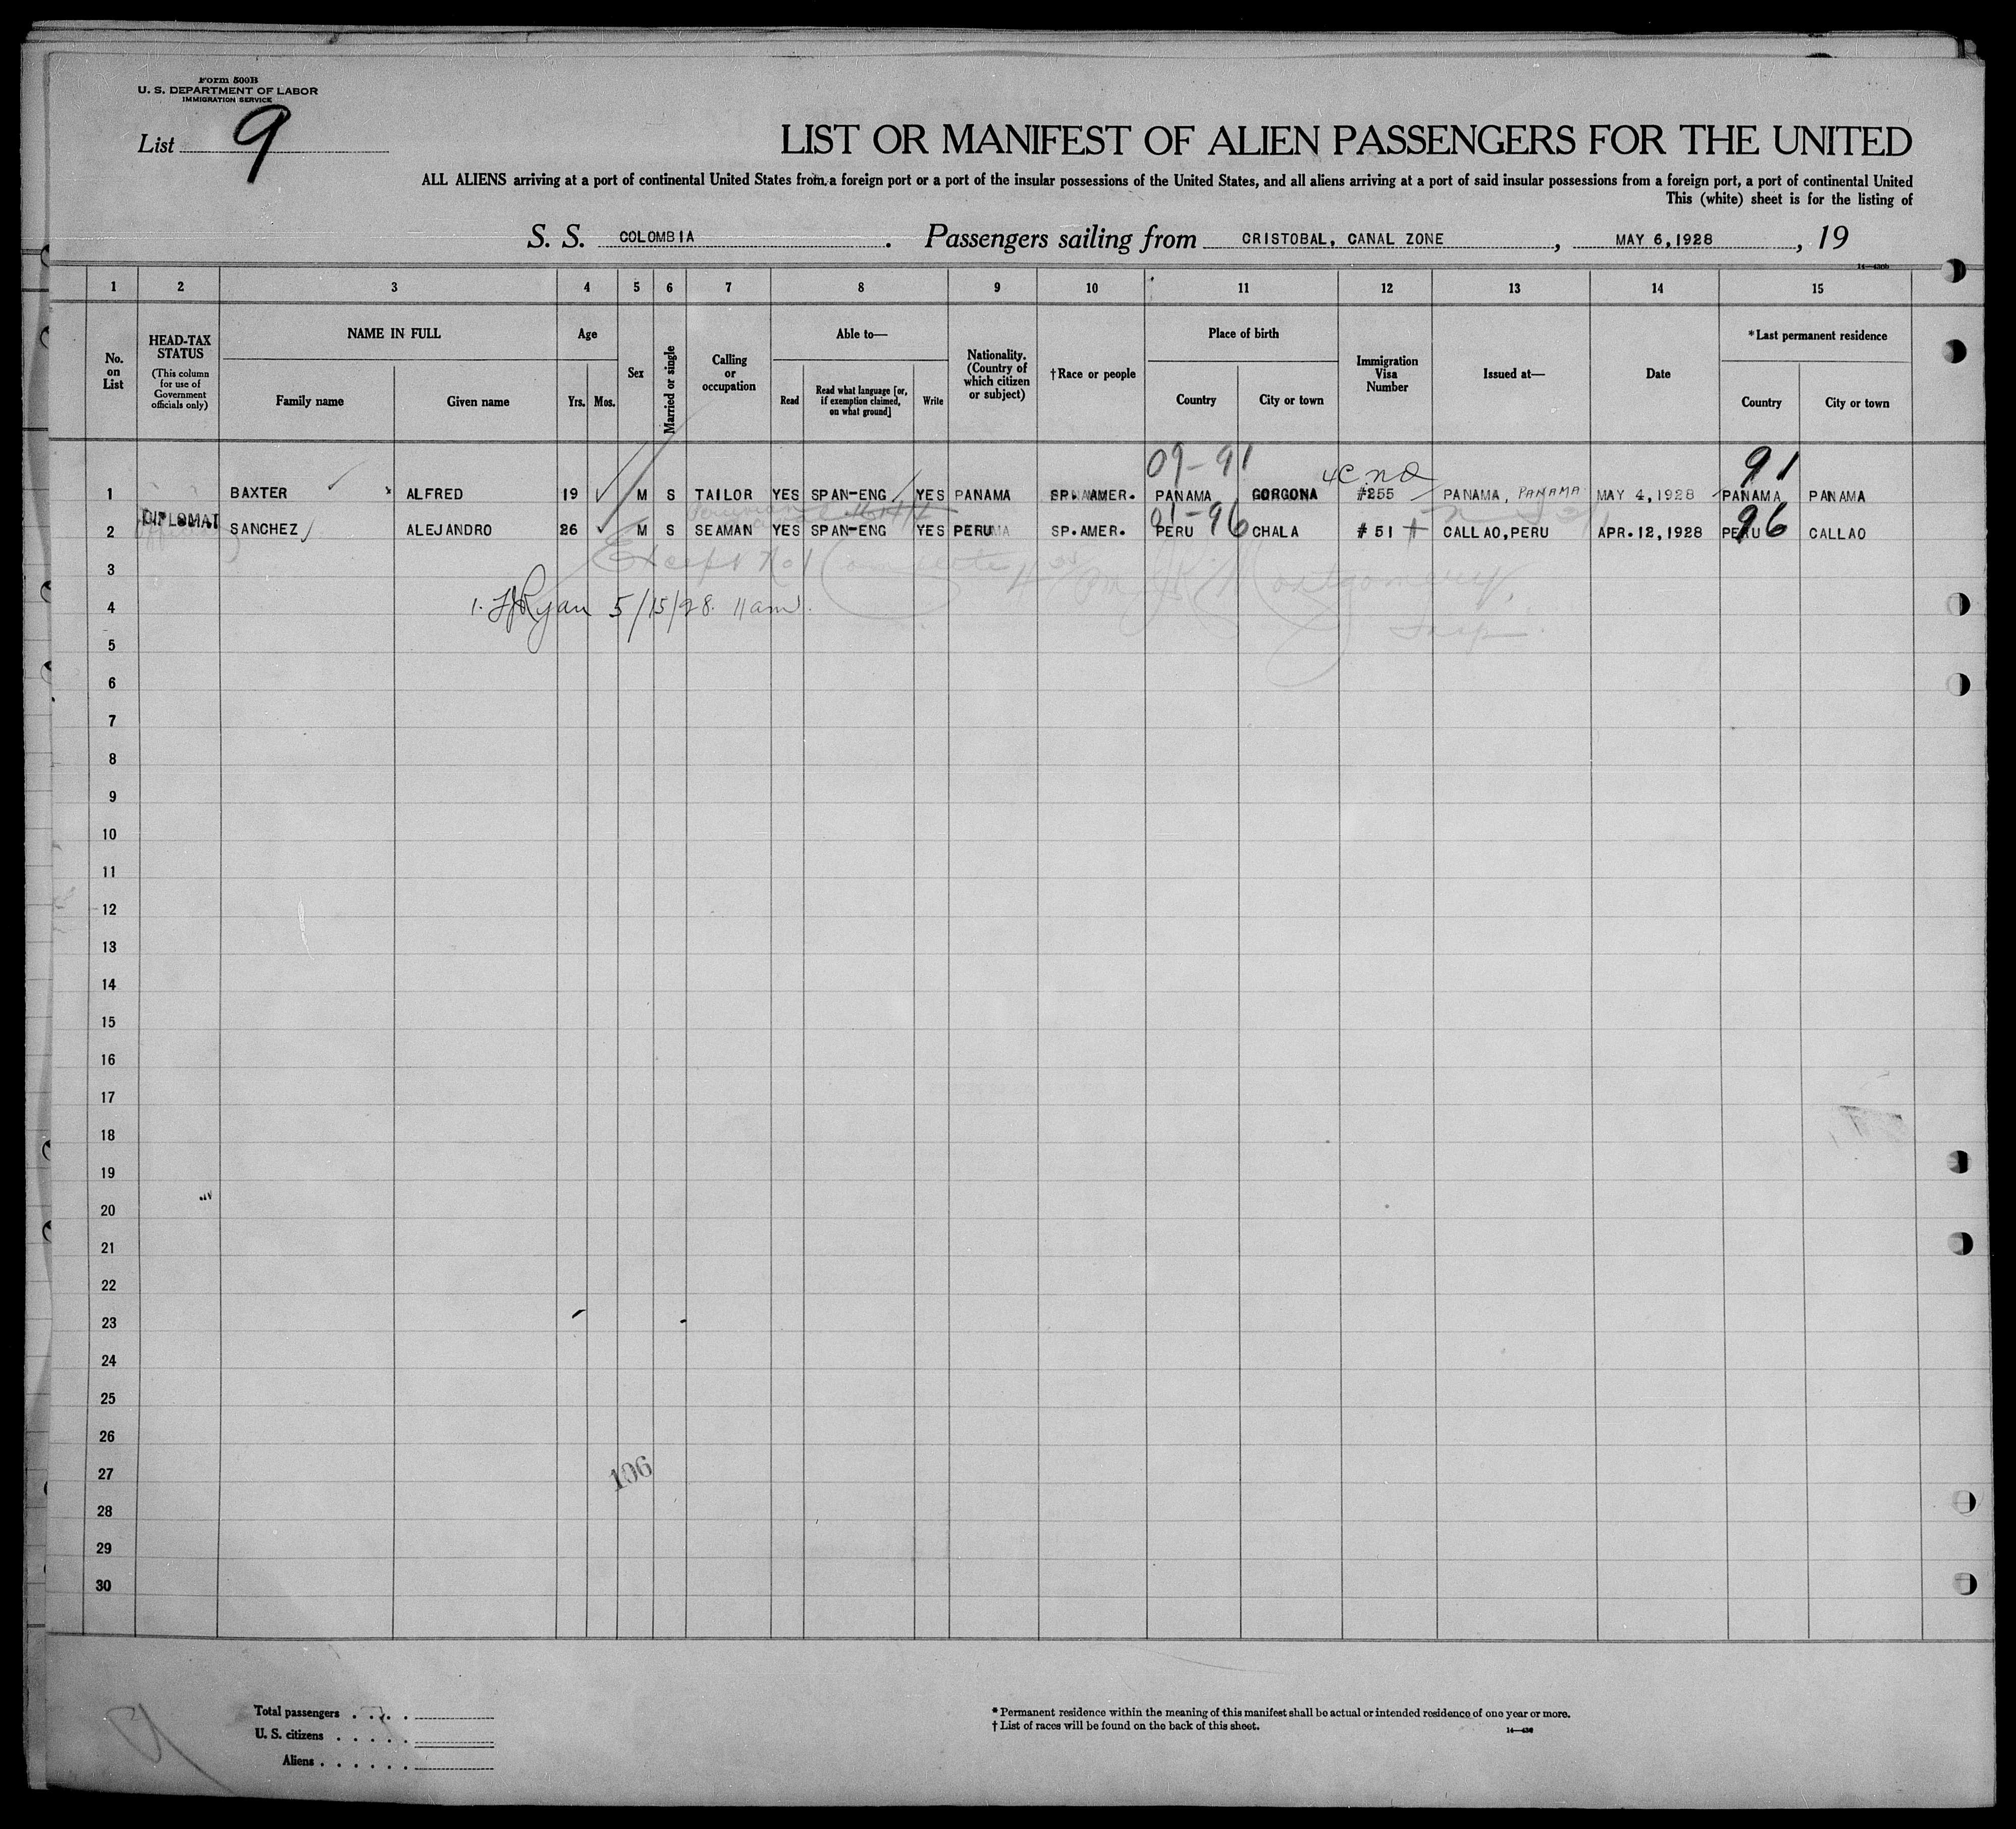 Form 500B
U. S. DEPARTMENT OF LABOR
IMMIGRATION SERVICE
List 9
LIST OR MANIFEST OF ALIEN PASSENGERS FOR THE UNITED
ALL ALIENS arriving at a port of continental United States from a foreign port or a port of the insular possessions of the United States, and all aliens arriving at a port of said insular possessions from a foreign port, a port of continental United
This (white) sheet is for the listing of
S. S. COLOMBIA . Passengers sailing from CRISTOBAL, CANAL ZONE , MAY 6, 1928 , 19
1 2 3 4 5 6 7 8 9 10 11 12 13 14 15
No. on List
HEAD-TAX STATUS (This column for use of Government officials only)
NAME IN FULL Family name Given name
Age Yrs. Mos.
Sex
Married or single
Calling or occupation
Able to— Read Read what language [or, if exemption claimed, on what ground] Write
Nationality. (Country of which citizen or subject)
†Race or people
Place of birth Country City or town
Immigration Visa Number
Issued at—
Date
*Last permanent residence Country City or town
09-91 4c. nd 91
1 BAXTER ALFRED 19 M S TAILOR YES SPAN-ENG YES PANAMA SP. AMER. PANAMA GORGONA #255 PANAMA, PANAMA MAY 4, 1928 PANAMA PANAMA
01-96 96
2 DIPLOMAT SANCHEZ ALEJANDRO 26 M S SEAMAN YES SPAN-ENG YES PERU SP. AMER. PERU CHALA # 51 CALLAO, PERU APR. 12, 1928 PERU CALLAO
Except No 1 Complete Montgomery, Insp.
3
4 1. Ryan 5/15/28. 11am.
5
6
7
8
9
10
11
12
13
14
15
16
17
18
19
20
21
22
23
24
25
26
27
106
28
29
30
Total passengers . . . .
U. S. citizens . . . . .
Aliens . . . . . .
9
* Permanent residence within the meaning of this manifest shall be actual or intended residence of one year or more.
† List of races will be found on the back of this sheet.